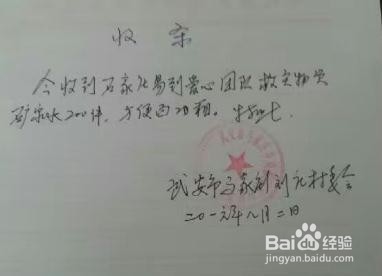 收条
今收到石家庄易到爱心团队救灾物资
矿泉水200件，方便面20箱。
武安市马家 刘 村委会
二〇一六年八月二日
Bai du 经验
jingyan.baidu.com